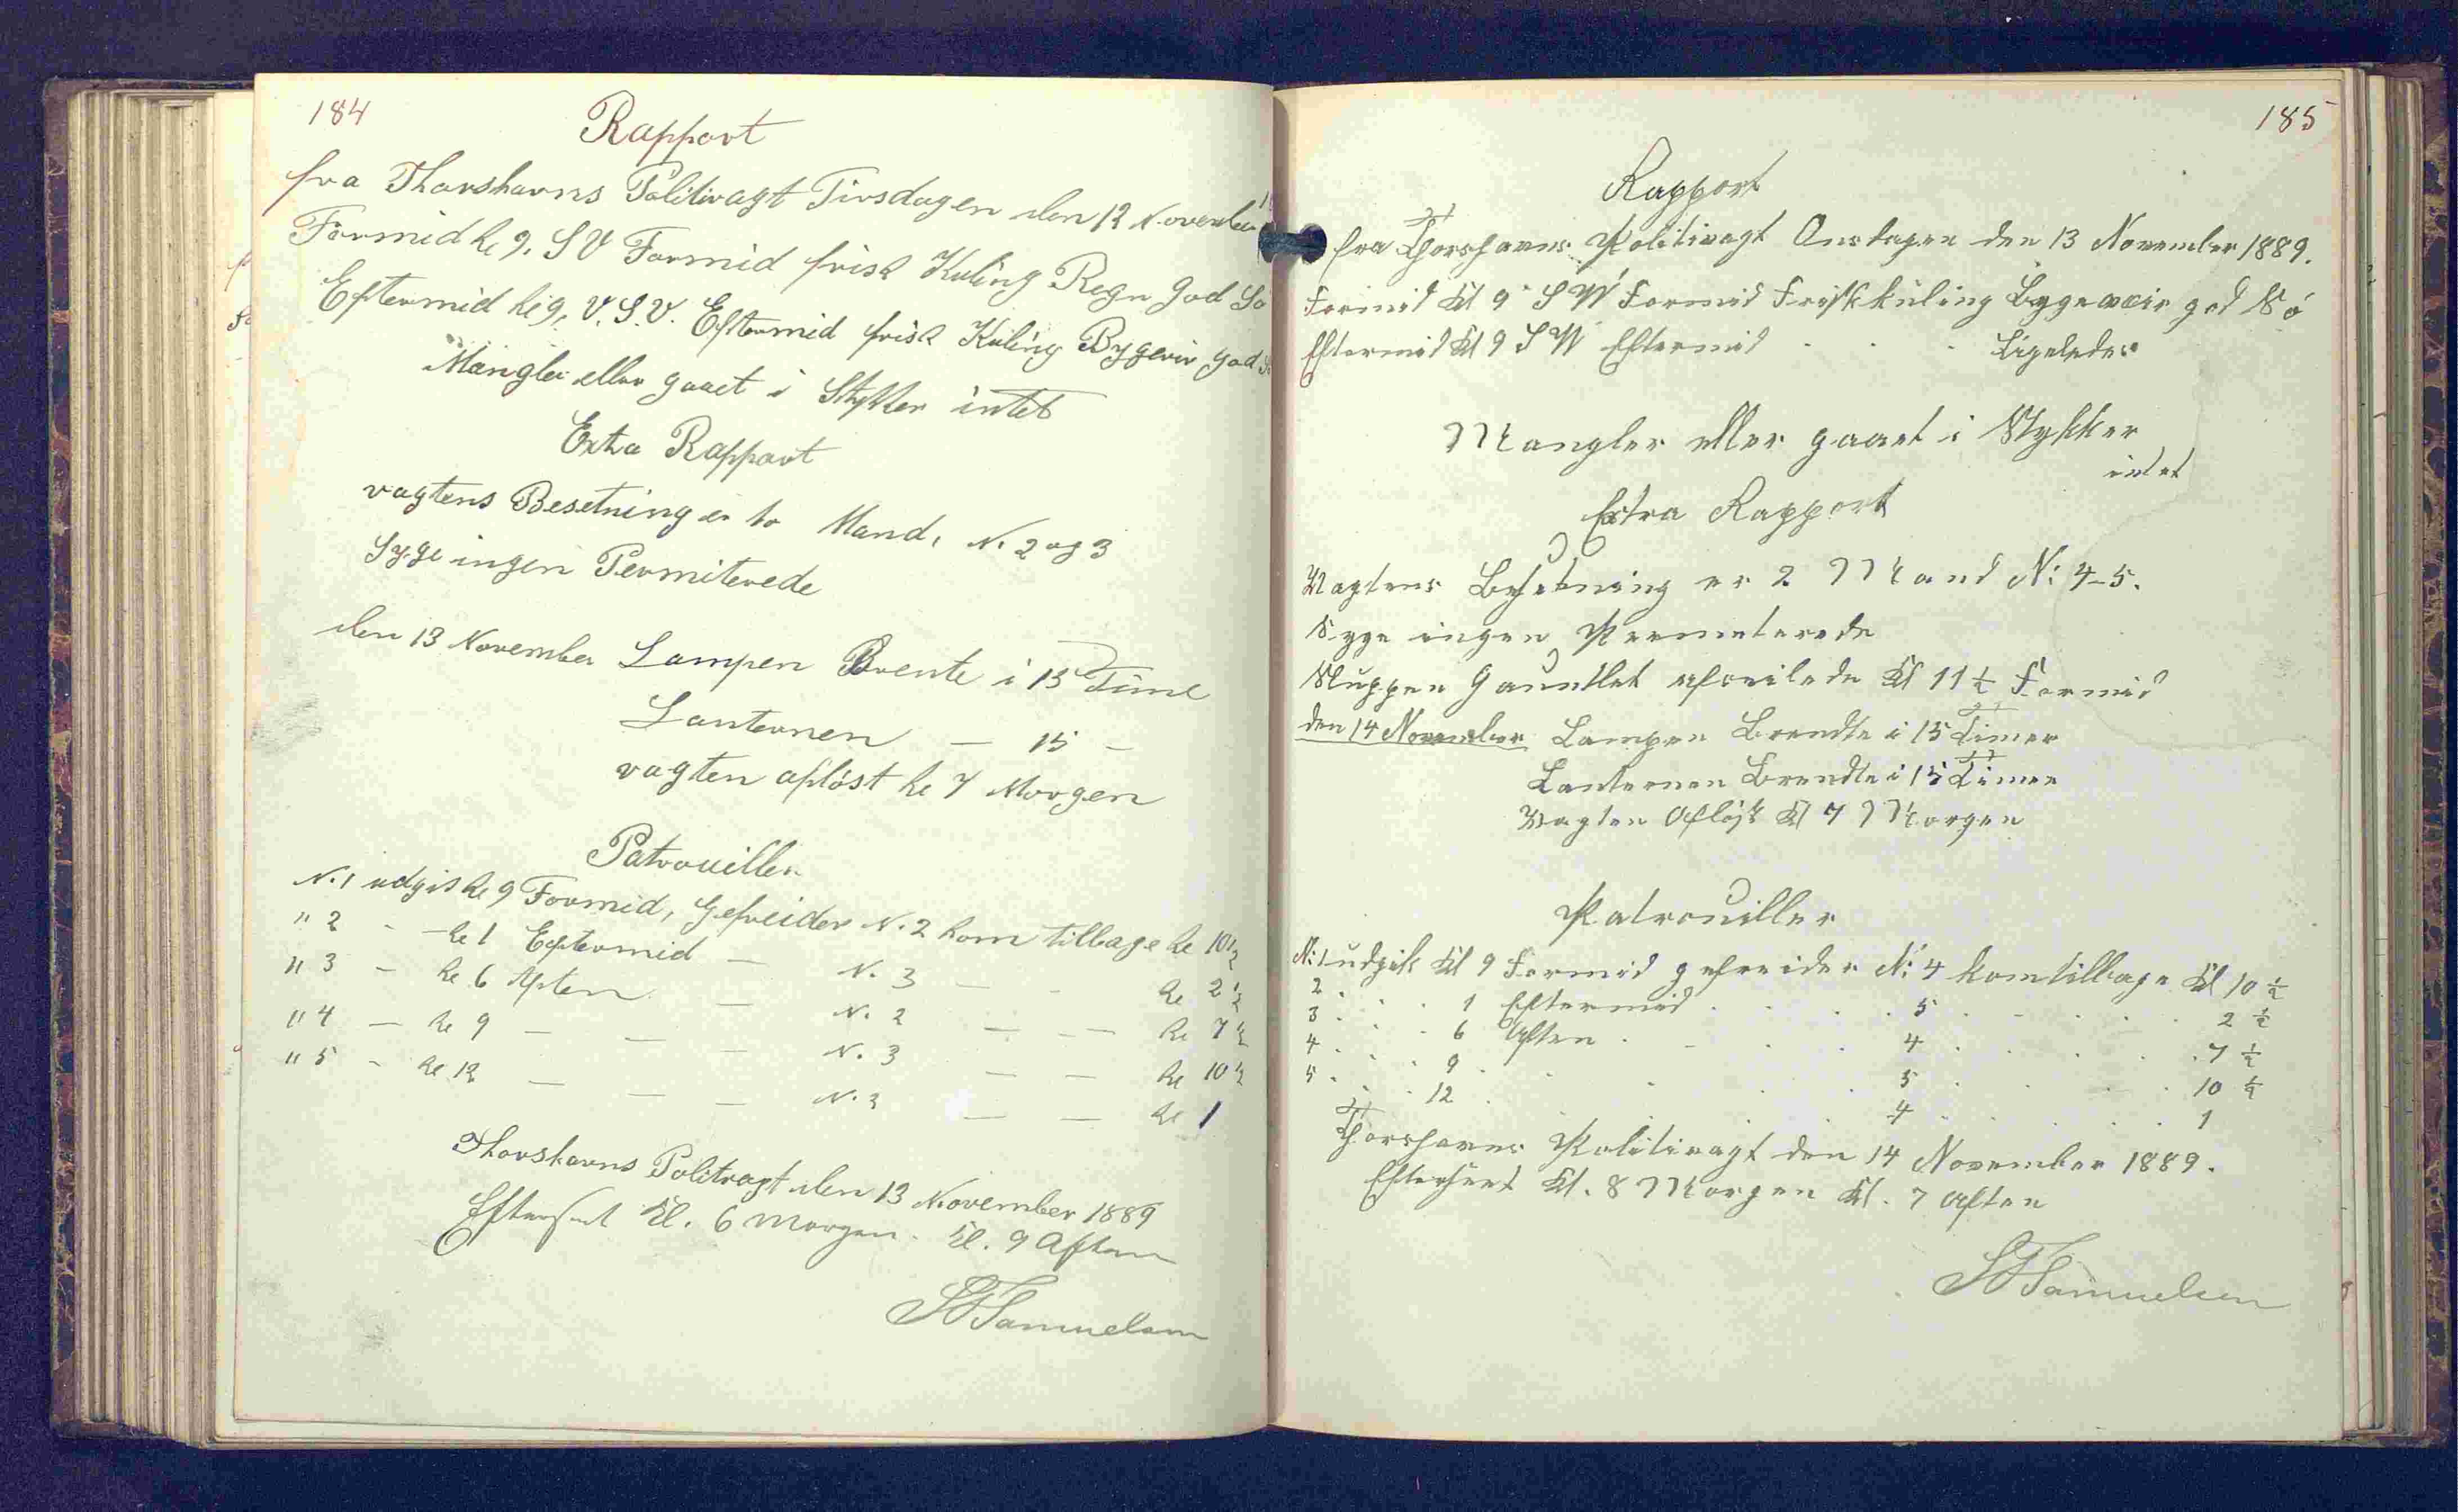 184
Rapport
fra Thorshavns Politivagt Tirsdagen den 12 November
Formid kl 9, S V Formid frisk Kuling Regn god Sø
Eftermid kl 9, V. S. V. Eftermid frisk Kuling Bygevir god
Mangler eller gaaet i Stykker intet
Exta Rapport
vagtens Besetning er to Mand, N. 2 og 3
Syge ingen Permiterede
den 13 November Lampen Brente i 15 Time
Lanternen — 15 –
vagten afløst kl 7 Morgen
Patrouiller
N. 1 udgik kl 9 Formid, Gefreider N. 2 kom tilbage kl 10½
" 2 - - kl 1 Eftermid — N. 3 — - kl 2½
" 3 - kl 6 Aften — N. 2 — — kl 7½
" 4 — kl 9 — — — N. 3 — — kl 10½
" 5 - kl 12 — — — N. 2 — — kl 1
Thorshavns Politivagt den 13 November 1889
Efterseet Kl. 6 Morgen. Kl. 9 Aften
Samuelsen
185
Rapport
fra Thorshavns Politivagt Onsdagen den 13 November 1889.
Formid Kl 9 S W Formid Frisk kuling Bygeveir god Sø
Eftermid Kl 9 S W Eftermid . . . Ligeledes
Mangler eller gaaet i Stykker
intet
Extra Rapport
Vagtens Besetning er 2 Mand N: 4-5.
Syge ingen Permeterede
Sluppen Gauntlet afseilede Kl 11½ Formid
den 14 November Lampen Brendte i 15 Timer
Lanternen Brendte i 15 Timer
Vagten Afløst Kl 7 Morgen
Patrouiller
N: 1 udgik Kl 9 Formid gefreider N: 4 kom tilbage Kl 10 ½
2 . . . 1 Eftermid . . . 5 . . . . . 2 ½
3 . . . 6 Aften . . . . 4 . . . . . 7 ½
4 . . . 9 . . . . . 5 . . . . . 10 ½
5 . . . 12 . . . . . 4 . . . . . 1
Thorshavns Politivagt den 14 November 1889.
Efterseet Kl. 8 Morgen Kl. 7 Aften
Samuelsen